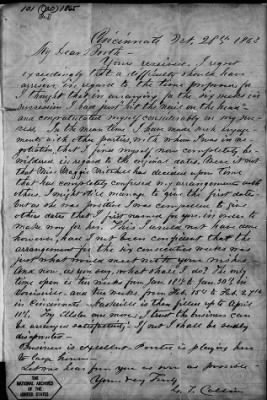 101 (JWB) 1865
Cincinnati Oct. 28th 1863
My Dear Booth—
Yours received. I regret
exceedingly that a difficulty should have
arisen in regard to the time preferred for
I thought that in arranging for the six weeks in
succession I had just hit the nail on the head—
and congratulated myself considerably on my suc-
cess. In the mean time I have made such engage-
ments with other parties with whom I was in ne-
gotiation that I find myself now completely be-
wildered in regard to the original dates. Then it is not
that Miss Maggie Mitchell has decided upon time
that has completely confused my arrangements with
others. I might still manage to give the first date
but as she was positive I was compelled to give
other dates that I first named for you in order to
make room for her. This I would not have done
however, had I not been confident that the
arrangement for the six consecutive weeks was
just what would meet with your wishes.
And now, as you say, what shall I do? The only
time open is two weeks from Jan 11th to Jan 30th in
Louisville and two weeks from Feb 15th to Feb 27th
in Cincinnati. Nashville is then filled up to April
11th. Try Ellsler once more, I trust the business can
be arranged satisfactorily; if not I shall be sadly
disappointed—
Business is excellent. Proctor is playing here
to large houses—
Let me hear from you as soon as possible—
Yours Very Truly
THE
NATIONAL ARCHIVES
OF THE
UNITED STATES